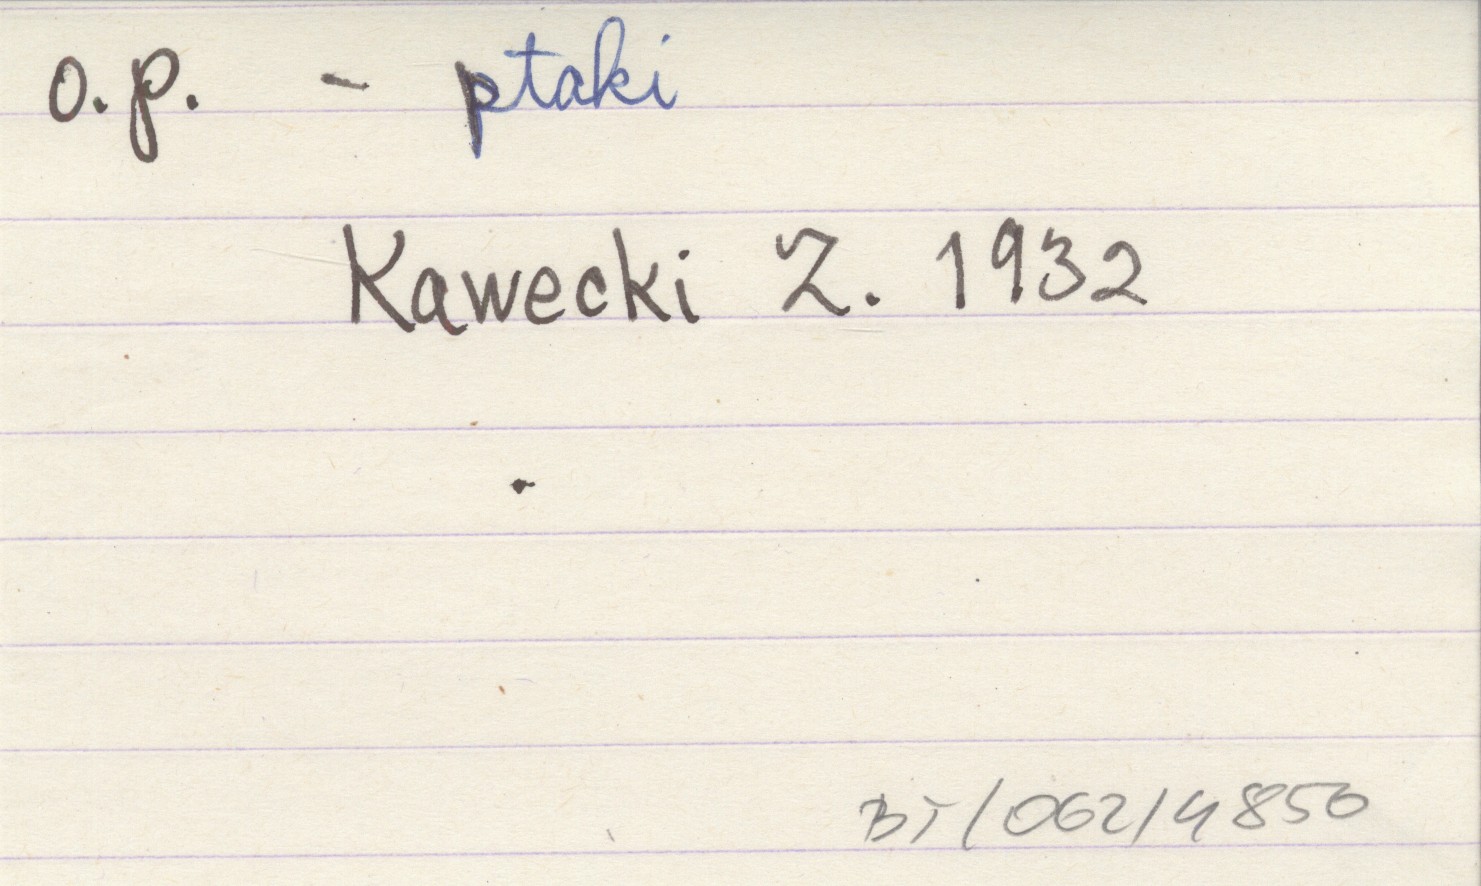 o.p. - ptaki
Kawecki Z. 1932
BT/062/4850